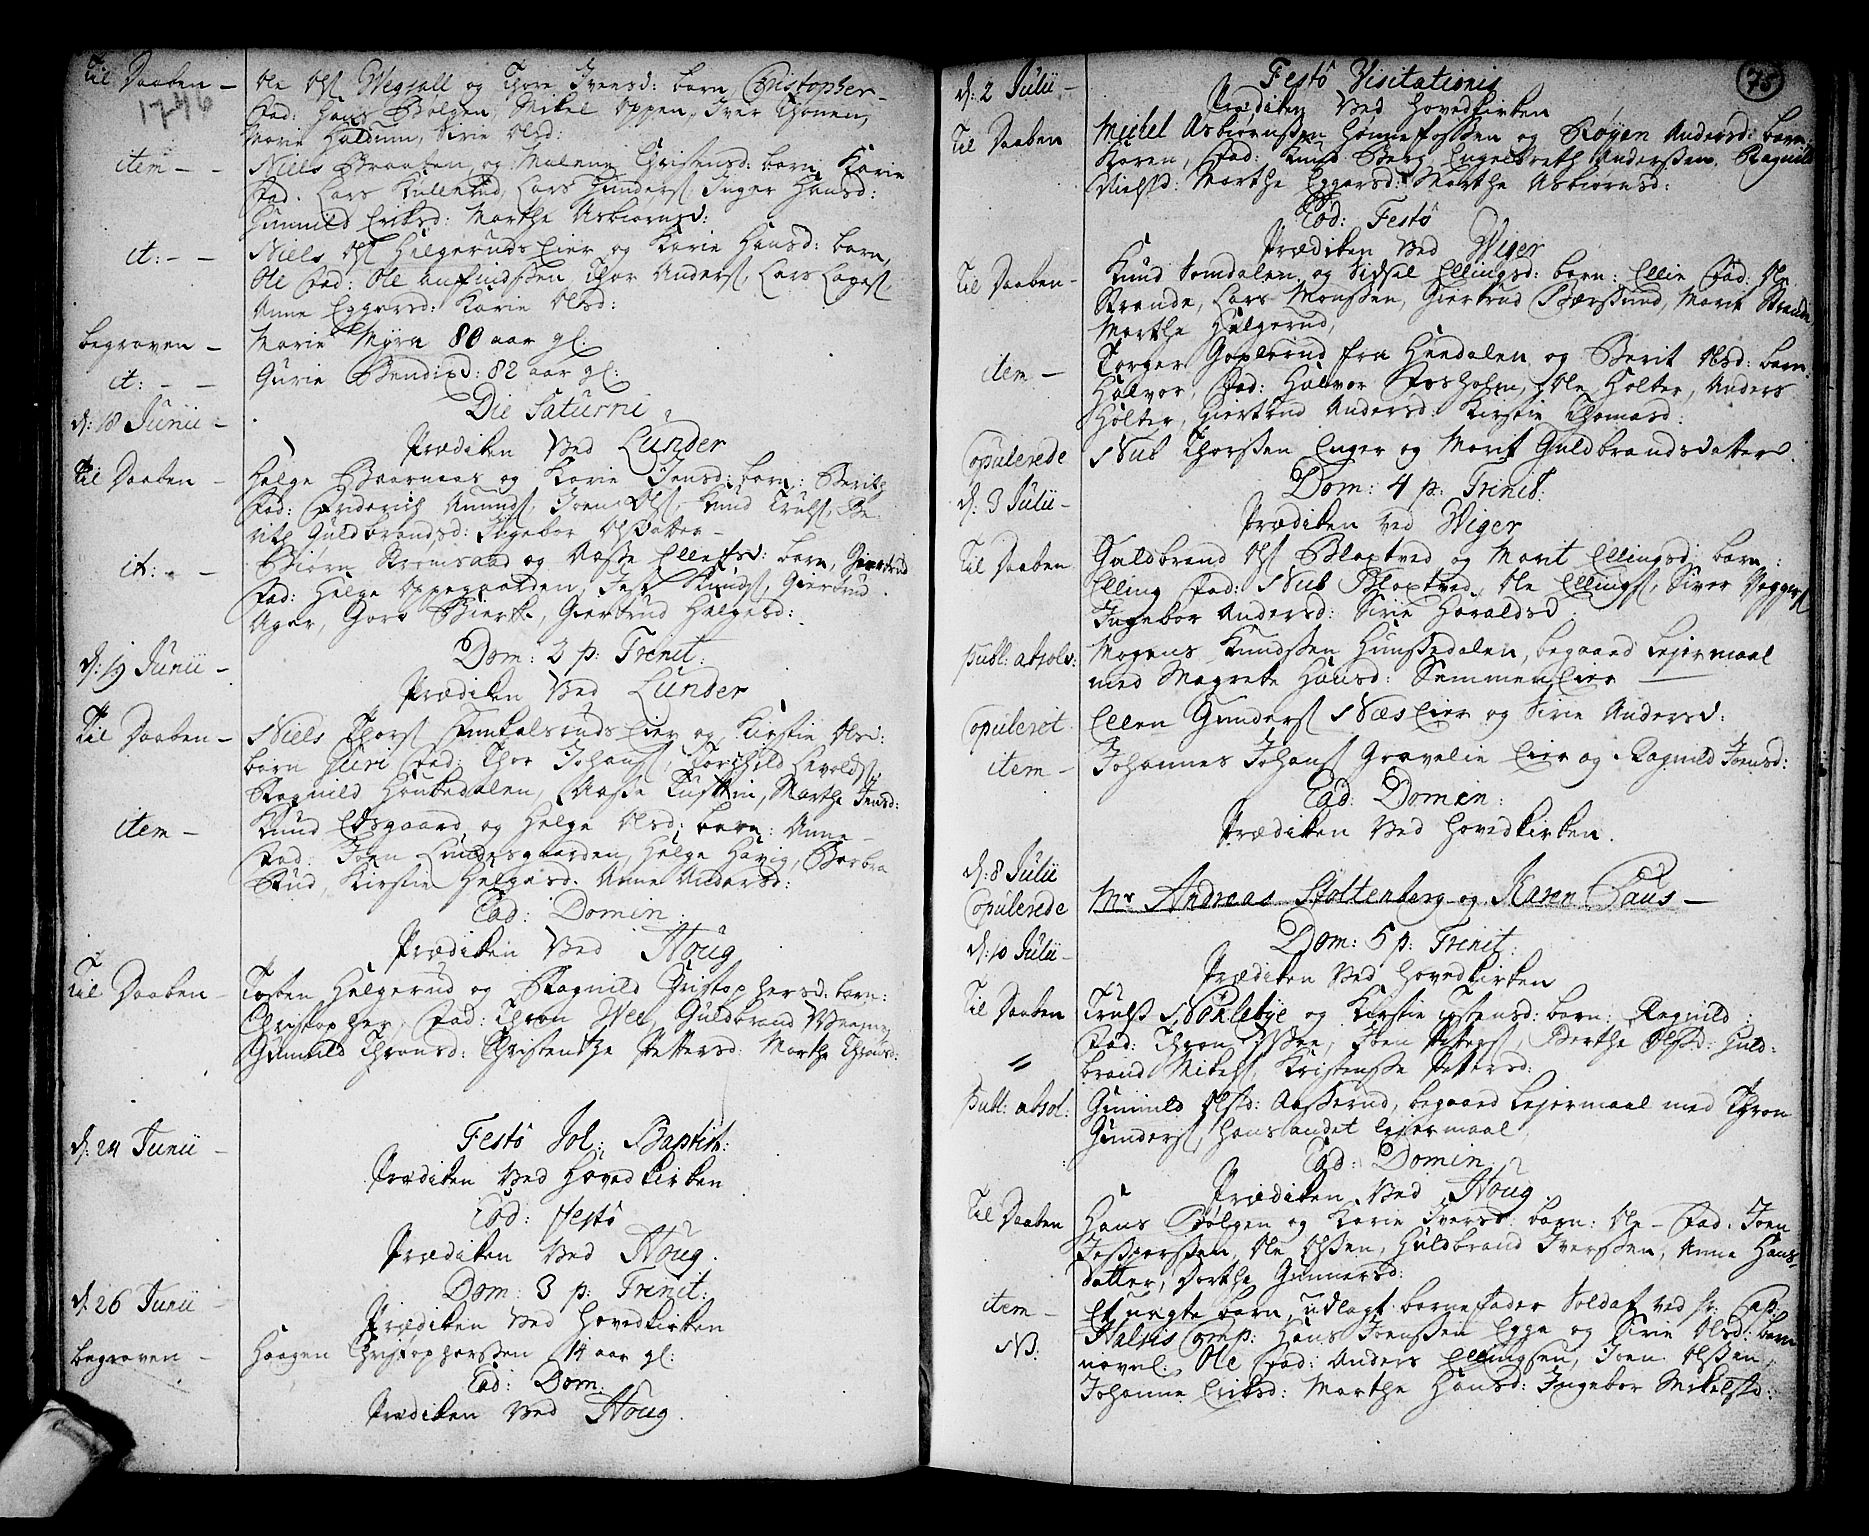 Til Daaben – Ole Ols Wegsall og Thore Ivensd: barn Christopher –
1746
Fad: Hans Bolgen, Mikel Oppen, Iver Thonen,
Marie Haldum, Sirie Olsd:
item – – Niels Braaten og Malene Christensd: barn Karie
Fad. Lars Kullerud, Lars Gunders Inger Hansd:
Gunnild Eriksd: Marthe Asbiørnsd:
it: – – Niels Ols Helgerudseier og Karie Hansd: barn,
Ole Fad: Ole Anfindssen Thor Anders, Lars Lages,
Anne Eggersd: Karie Olsd:
begraven – Marie Myra 80 aar gl.
it: – – Gurie Bendixd: 82 aar gl:
d: 18 Junii – Die Saturni
Prædiken ved Lunder
Til Daaben – Helge Baarnaas og Karie Jensd: barn: Berite
Fad: Friderich Amunds, Joen Ols, Knud Truls, Be-
rite Guldbrandsd: Ingebor Olsdatter –
it: – Biørn Ramsaad og Aasse Ellefsd: barn, Giertrud
Fad: Helge Oppegaarden, Knuds, Giertrud
Ager, Goro Biertke, Giertrud Helgesd:
d: 19 Junii – Dom: 3 p: Trinit:
Prædiken ved Lunder
Til Daaben – Niels Thors eier og Kirstie Olsd:
barn Guri Fad: Thor Johans, Torchild Levolds,
Ragnild Houkedalen, Aasse Marthe Jensd:
item – Knud Elsgaard og Helge Olsd: barn: Anne –
Fad: Joen Lindesgaarden, Helge Havig, Barbra
Rud, Kirstie Helgesd. Anne Andersd:
Ead: Domin
Prædiken ved Houg
Til Daaben – Tosten Helgerud og Ragnild Christophersd: barn:
Christopher, Fad: Thron Wee, Guldbrand
Gunnild Thronsd: Christentze Pettersd: Marthe Thronsd:
d: 24 Junii – Festo Joh: Baptist:
Prædiken ved Hovedkirken
Eod: Festo
Prædiken ved Houg.
d: 26 Junii – Dom: 3 p: Trinit:
Prædiken ved Hovedkirken
begraven – Haagen Christophersen 14 aar gl:
Ead: Dom:
Prædiken ved Houg.
75
d: 2 Julii – Festo Visitationis
Prædiken ved Hovedkirken
Til Daaben Michel Asbiørnssen Hønnefossen og Røyen Andersd: barn,
Karen, Fad: Knud Berg, Engelbreth Anderssen, Ragnild
Nielsd: Marthe Eggersd: Marthe Asbiørnsd:
Eod: Festo
Prædiken ved Wiger
Til Daaben – Knud Somdalen og Sidsel Ellingsd: barn: Ellie Fad: Ole
Strande, Lars Monssen, Giertrud Marit Strande
Marthe Helgerud,
item – Torger Goplerud fra Heedalen og Berit Olsd: barn:
Halvor, Fad: Halvor Fosholm, Ole Holter, Anders
Holter, Giertrud Andersd: Kirstie Thomasd:
Copulerede Nub Thorssen Enger og Marit Guldbrandsdatter.
d: 3 Julii – Dom: 4 p: Trinit:
Prædiken ved Wiger
Til Daaben Guldbrand Ols Bloxtved og Marit Ellingsd: barn:
Elling Fad: Nub Bloxtved, Ole Ellings, Siver
Ingebor Andersd: Sirie Haraldsd.
Publ: absolv: Mogens Knudssen Hunssedalen, begaaed Lejermaal
med Magrete Hansd: Semmeneier
Copuleret Ellen Gunders Næs Eier og Sirie Andersd:
item – Johannes Johans Gravelie Eier og Ragnild Joensd:
Ead: Domin:
Prædiken ved Hovedkirken.
d: 8 Julii
Copulerede Mr Andreas Stoltenberg og Karen Paus –
d: 10 Julii – Dom: 5 p: Trinit:
Prædiken ved Hovedkirken
Til Daaben Truls Nørlebye og Kirstie Tostensd: barn: Ragnild:
Fad: Thron Wee, Joen Peters, Berthe Olsd: Guld-
brand Mikels, Kristensse Pettersd:
Publ: absol: Gunnild Olsd: Aasserud, begaaed Lejermaal med Thron
Gunders, hans andet lejermaal
Ead: Domin
Prædiken ved Houg.
Til Daaben Hans Bølgen og Karie Iversd: barn: Ole – Fad: Joen
Jesperssen, Ole Olssen, Guldbrand Iverssen, Anne Hans-
datter, Dorthe Gunnersd:
item – Et uægte barn, udlagt barnefader Soldat ved Hr: Cap:
NB. Halvs Comp: Hans Joenssen Egge og Sirie Olsd: barn
navnl: Ole Fad: Anders Ellingsen, Joen Olssen,
Johanne Eriksd: Marthe Hansd: Ingebor Mikelsd: